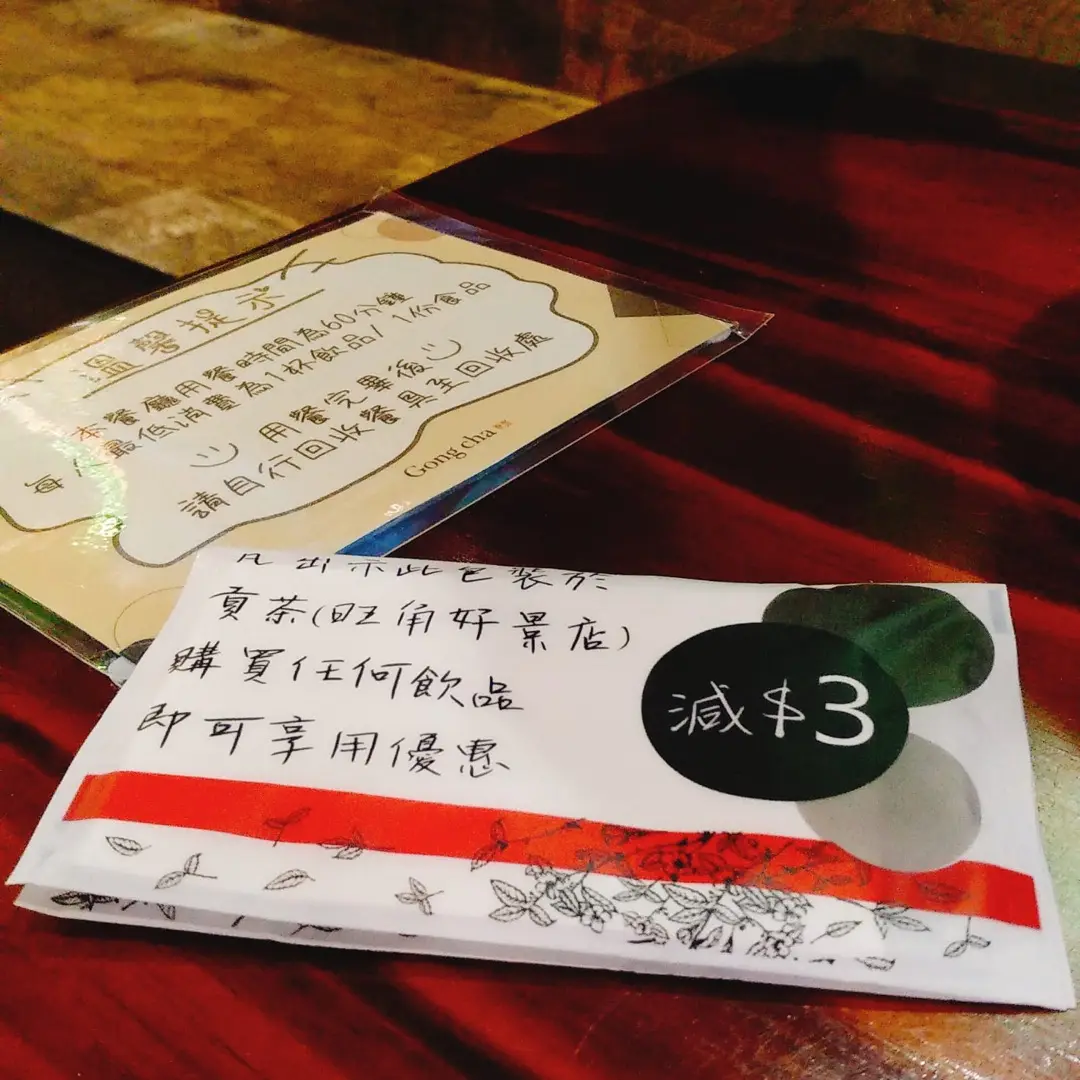 溫馨提示
本餐廳用餐時間為60分鐘
每人最低消費為1杯飲品/1份食品
用餐完畢後
請自行回收餐具至回收處
Gong cha
凡出示此包裝於
貢茶(旺角好景店)
購買任何飲品
即可享用優惠
減$3